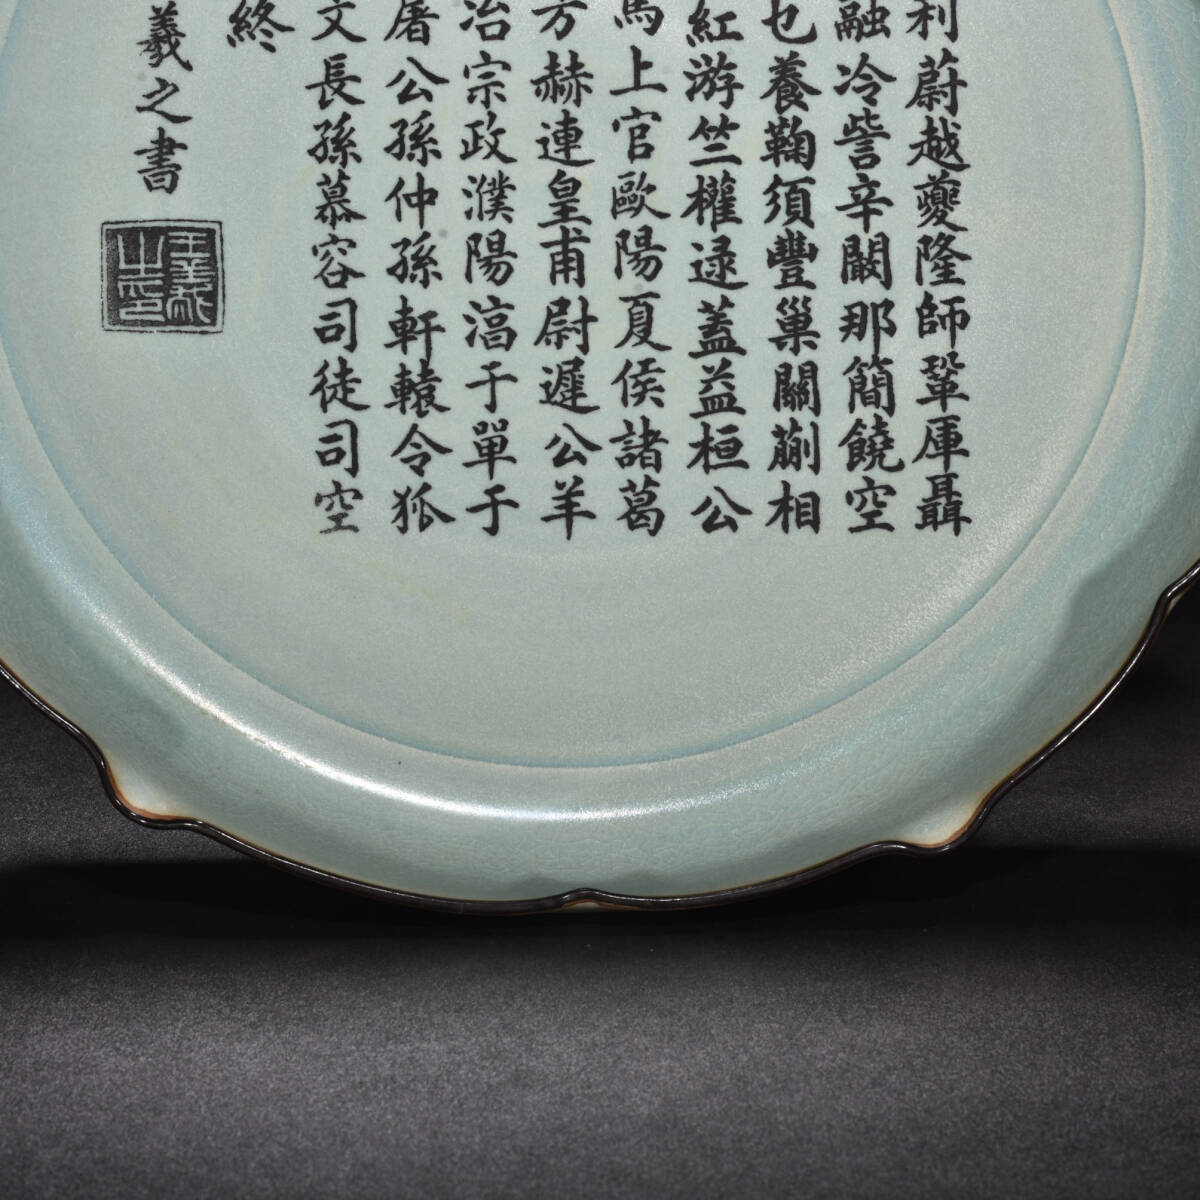 利蔚越夔隆師鞏厙聶
融冷訾辛闞那簡饒空
乜養鞠須豐巢關蒯相
紅游竺權逯蓋益桓公
馬上官歐陽夏侯諸葛
方赫連皇甫尉遲公羊
冶宗政濮陽淳于單于
屠公孫仲孫軒轅令狐
文長孫慕容司徒司空
終
羲之書
王羲之印